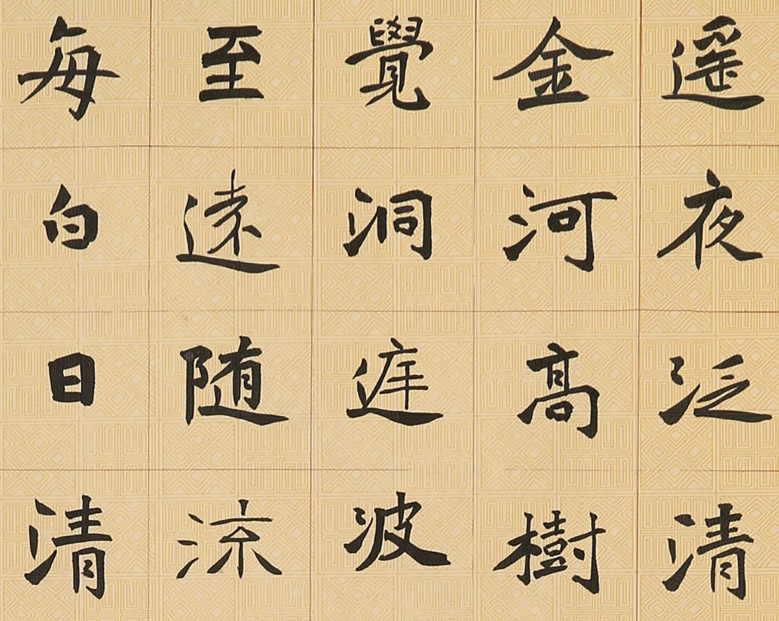 遥夜泛清
金河高樹
覺洞庭波
至遠随涼
每白日清